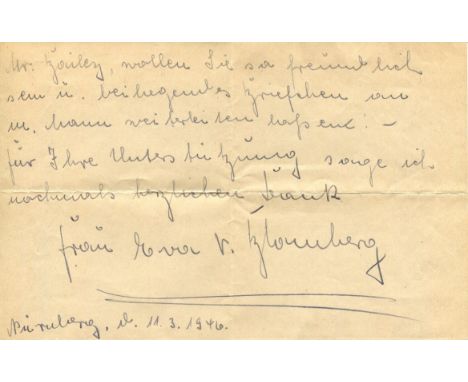 Mr. Bailey, wollen Sie so freundlich
sein u. beiliegendes Briefchen an
m. Mann weiterleiten laßen! –
für Ihre Unterstützung sage ich
nochmals herzlichen Dank
Frau Eva v. Blomberg
Nürnberg, d. 11.3.1946.